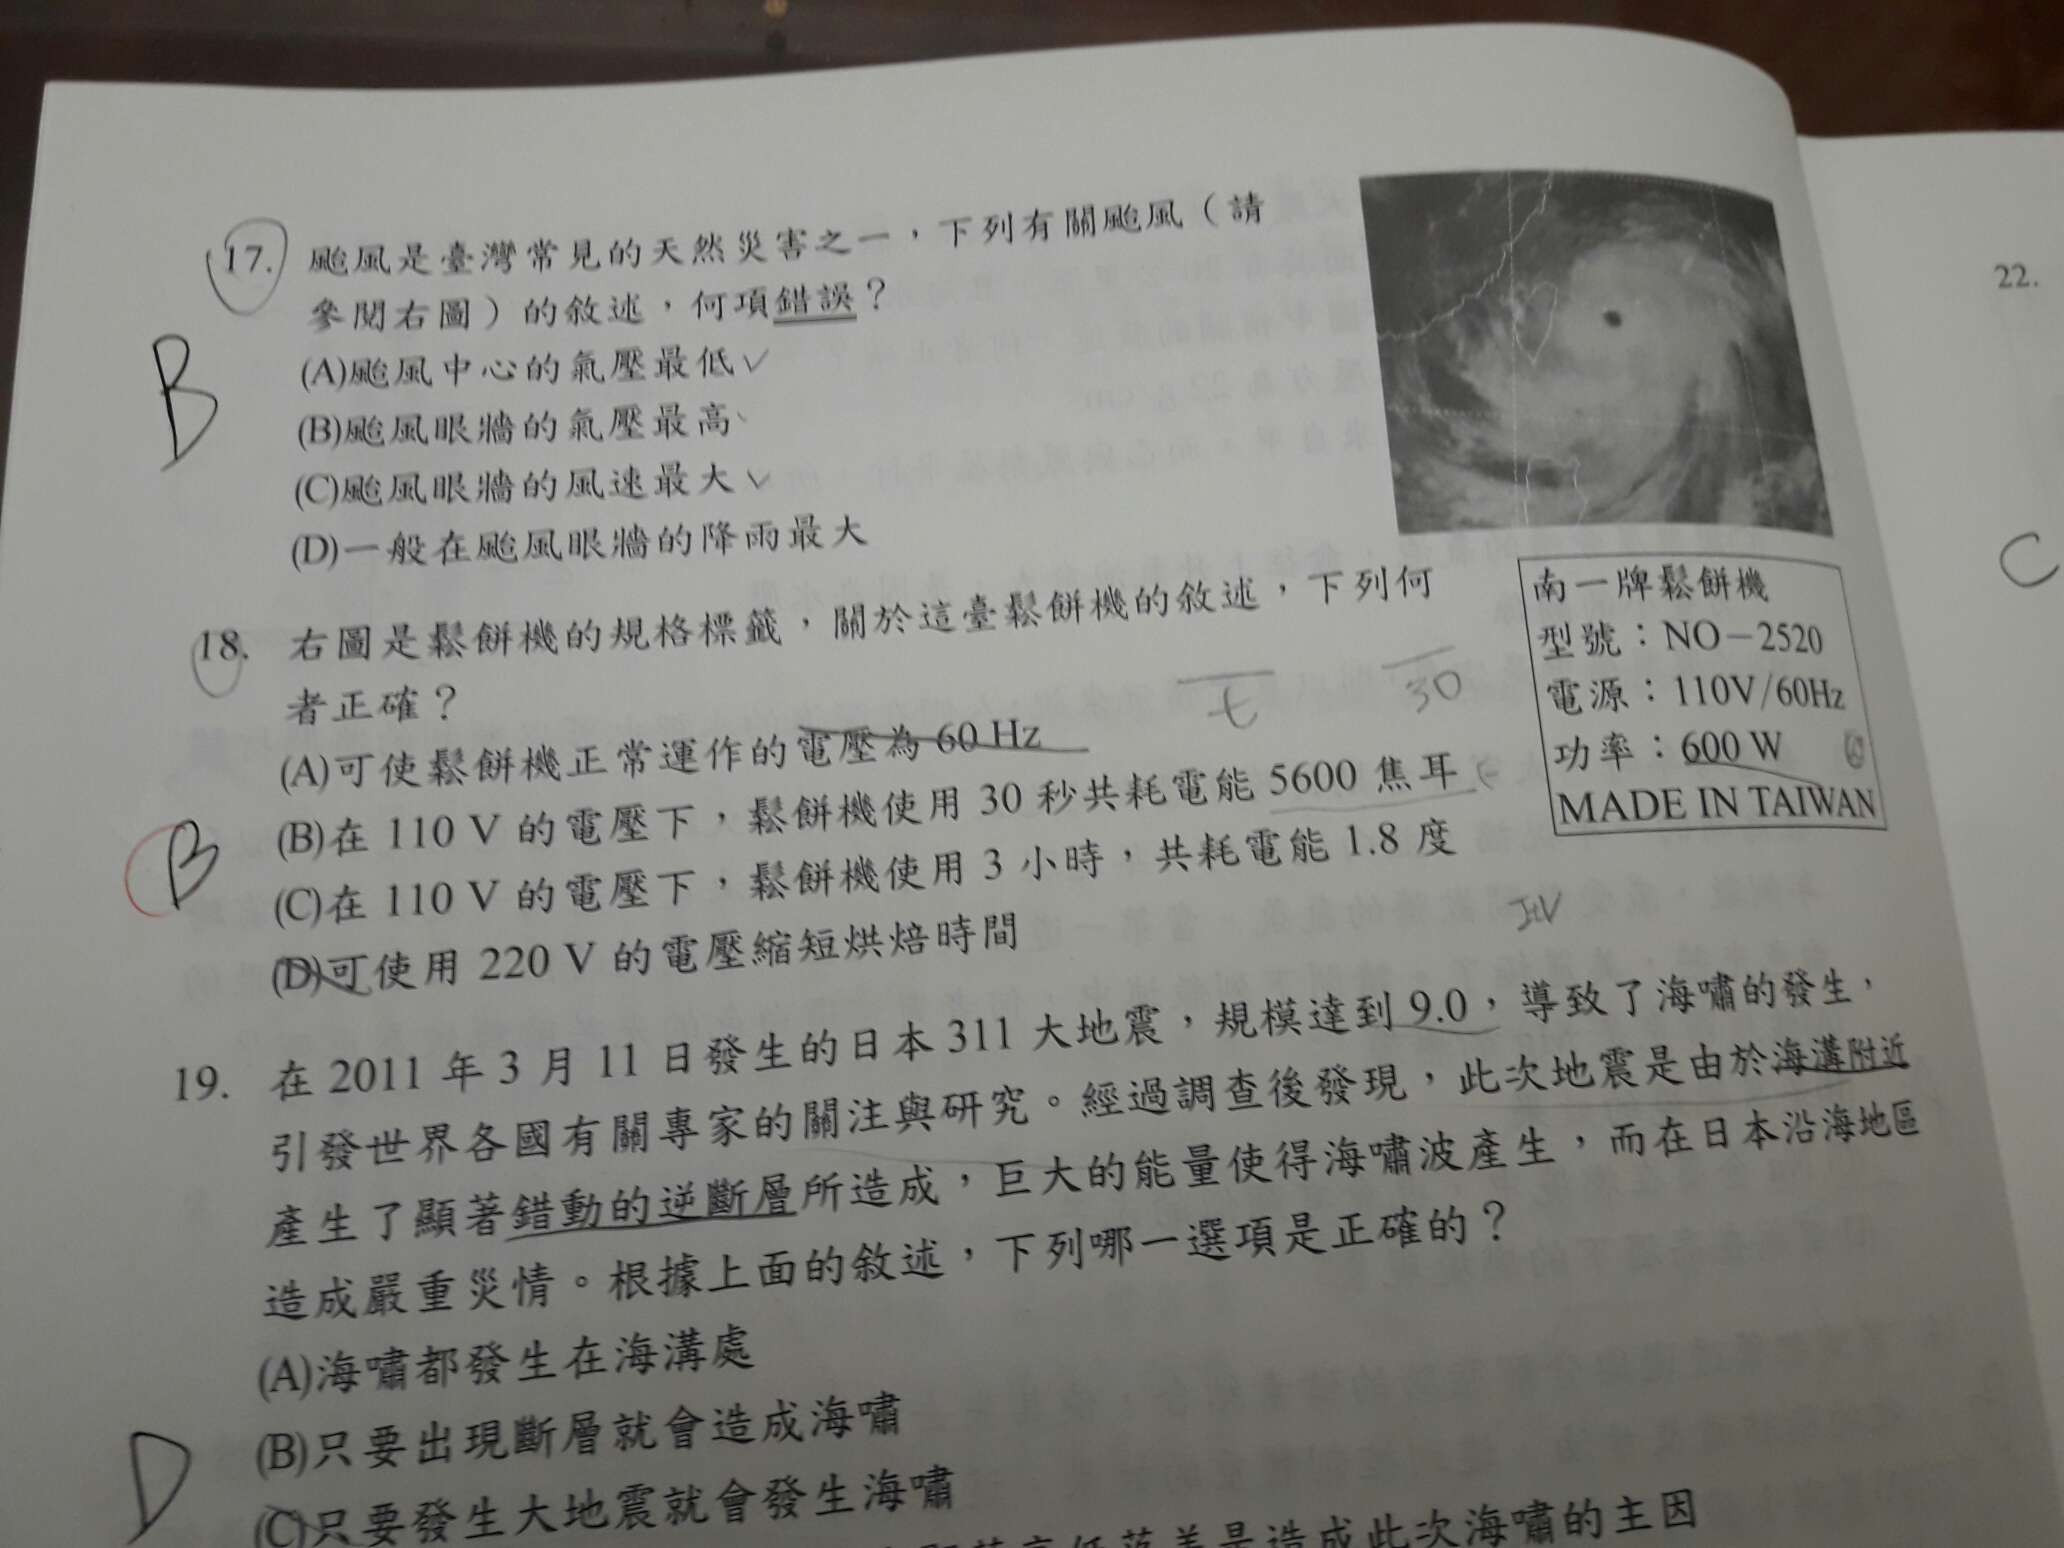 17. 颱風是臺灣常見的天然災害之一，下列有關颱風（請
參閱右圖）的敘述，何項錯誤？
(A)颱風中心的氣壓最低✓
(B)颱風眼牆的氣壓最高
(C)颱風眼牆的風速最大✓
(D)一般在颱風眼牆的降雨最大
B
18. 右圖是鬆餅機的規格標籤，關於這臺鬆餅機的敘述，下列何
者正確？
(A)可使鬆餅機正常運作的電壓為 60 Hz
(B)在 110 V 的電壓下，鬆餅機使用 30 秒共耗電能 5600 焦耳
(C)在 110 V 的電壓下，鬆餅機使用 3 小時，共耗電能 1.8 度
(D)可使用 220 V 的電壓縮短烘焙時間
B
t
30
南一牌鬆餅機
型號：NO－2520
電源：110V/60Hz
功率：600 W
MADE IN TAIWAN
19. 在 2011 年 3 月 11 日發生的日本 311 大地震，規模達到 9.0，導致了海嘯的發生，
引發世界各國有關專家的關注與研究。經過調查後發現，此次地震是由於海溝附近
產生了顯著錯動的逆斷層所造成，巨大的能量使得海嘯波產生，而在日本沿海地區
造成嚴重災情。根據上面的敘述，下列哪一選項是正確的？
(A)海嘯都發生在海溝處
(B)只要出現斷層就會造成海嘯
(C)只要發生大地震就會發生海嘯
是造成此次海嘯的主因
D
22.
C